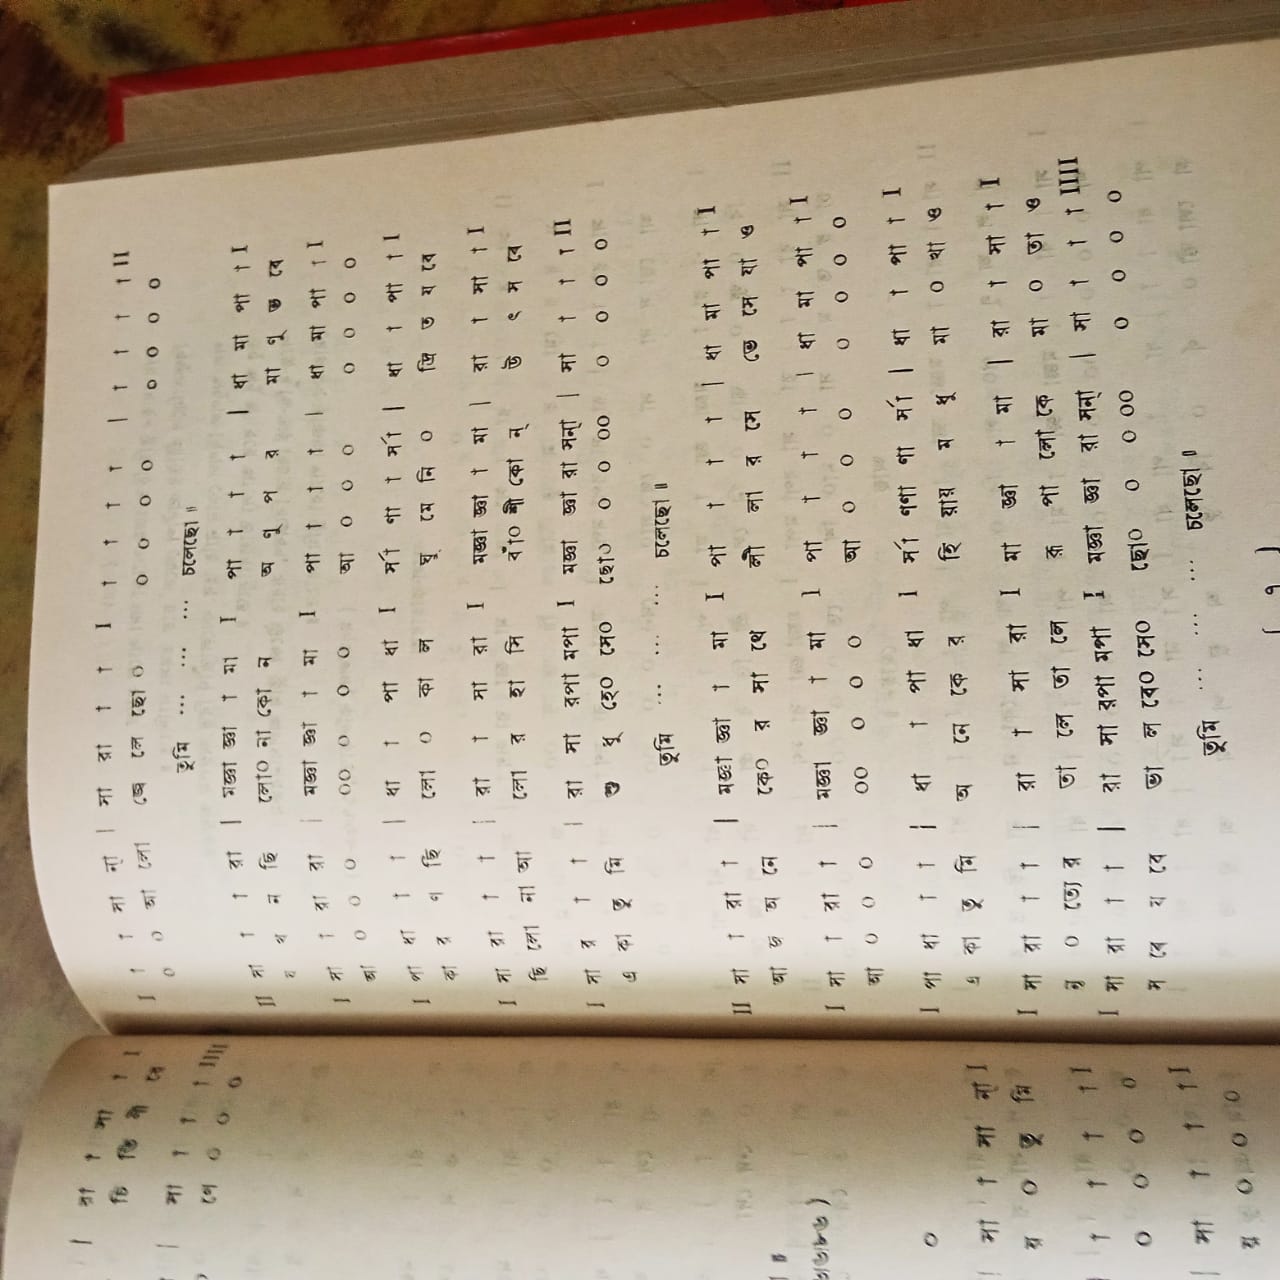 I † † সা ন্‌া | সা রা † † I † † † † | † † † † II
০ ০ আ লো জে লে ছো ০ ০ ০ ০ ০ ০ ০ ০ ০
তুমি ... ... ... চলেছো ॥
II সা † † রা | মজ্ঞা জ্ঞা † মা I পা † † † | ধা মা পা † I
য খ ন ছি লো০ না কো ন অ ণু প র মা ণু ভ বে
I সা † রা রা | মজ্ঞা জ্ঞা † মা I পা † † † | ধা মা পা † I
আ ০ ০ ০ ০০ ০ ০ ০ আ ০ ০ ০ ০ ০ ০ ০
I পা ধা † † | ধা † পা ধা I র্সা ণা † র্সা | ধা † পা † I
কা র ণ ছি লো ০ কা ল ঘু মে নি ০ জি ত য বে
I সা রা † † | রা † সা রা I মজ্ঞা জ্ঞা † মা | রা † সা † I
ছি লো না আ লো র হা সি বাঁ০ শী কো ন্ উ ৎ স বে
I সা র † † | রা সা রপা মপা I মজ্ঞা জ্ঞা রা সন্‌া | সা † † † II
এ কা তু মি শু ধু হে০ সে০ ছো০ ০ ০ ০০ ০ ০ ০ ০
তুমি ... ... ... চলেছো ॥
II সা † রা † | মজ্ঞা জ্ঞা † মা I পা † † † | ধা মা পা † I
আ জ অ নে কে০ র সা থে লী লা র সে ভে সে যা ও
I সা † রা † | মজ্ঞা জ্ঞা † মা I পা † † † | ধা মা পা † I
আ ০ ০ ০ ০০ ০ ০ ০ আ ০ ০ ০ ০ ০ ০ ০
I পা ধা † † | ধা † পা ধা I র্সা ণণা ণা র্সা | ধা † পা † I
এ কা তু মি অ নে কে র হি য়ায় ম ধু মা ০ খা ও
I সা রা † † | রা † সা রা I মা জ্ঞা † মা | রা † সা † I
নৃ ০ ত্যে র তা লে তা লে রূ পা লো কে মা ০ তা ও
I সা রা † † | রা সা রপা মপা I মজ্ঞা জ্ঞা রা সন্‌া | সা † † † IIII
স বে য বে ভা ল বে০ সে০ ছো০ ০ ০ ০০ ০ ০ ০ ০
তুমি ... ... ... চলেছো ॥